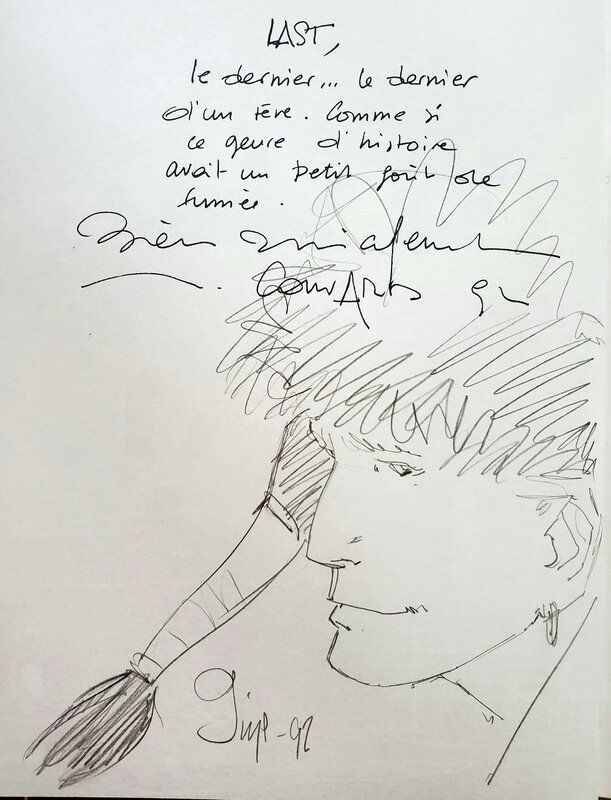 LAST,
le dernier... le dernier
d'un rêve. Comme si
ce genre d'histoire
avait un petit goût de
fumée.
Bien amicalement
Convard 92
Gine-92